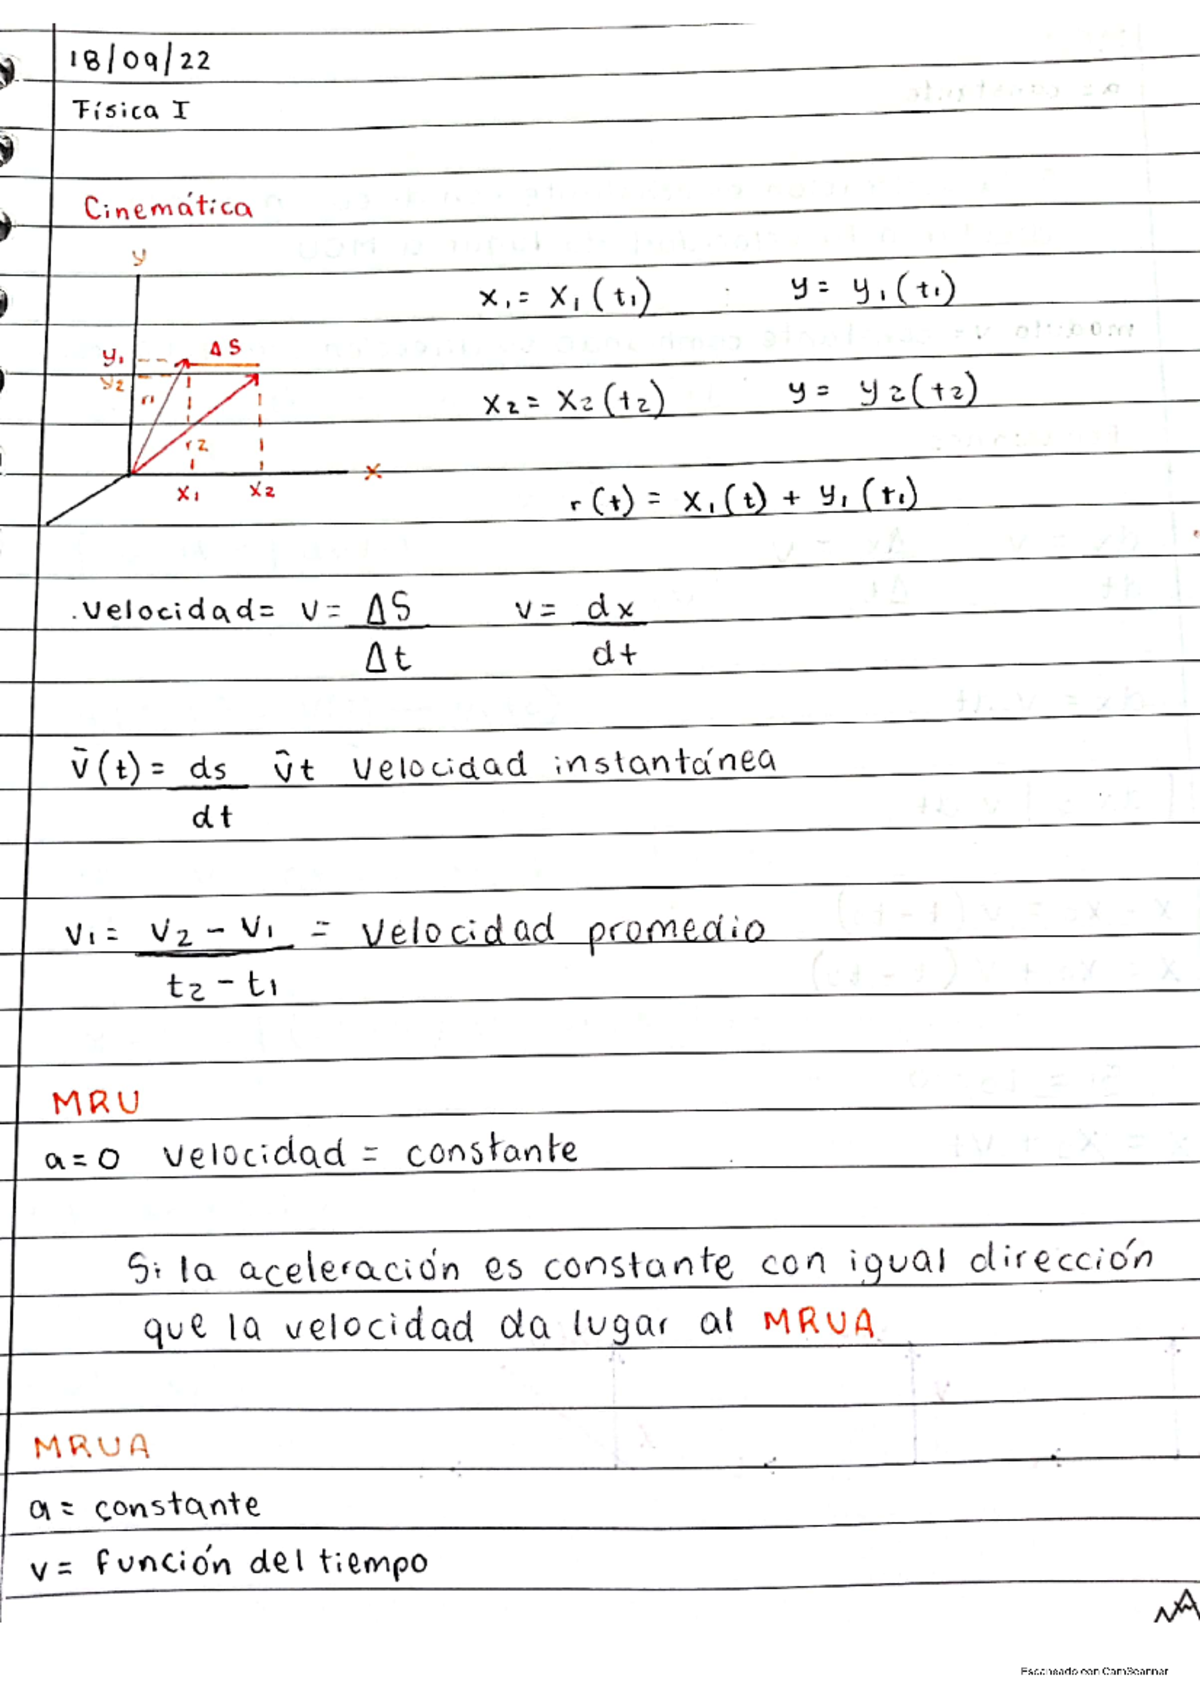 18/09/22
Física I
Cinemática
y
x₁ = x₁(t₁) y = y₁(t₁)
y₁ ΔS
y₂
r₁
x₂ = x₂(t₂) y = y₂(t₂)
r₂
x
x₁ x₂
r(t) = x₁(t) + y₁(t₁)
.Velocidad= v= ΔS/Δt v= dx/dt
v̄(t)= ds/dt v̄t Velocidad instantánea
v₁= v₂-v₁/t₂-t₁ = velocidad promedio
MRU
a=0 velocidad = constante
Si la aceleración es constante con igual dirección
que la velocidad da lugar al MRUA
MRUA
a= constante
v= función del tiempo
Escaneado con CamScanner